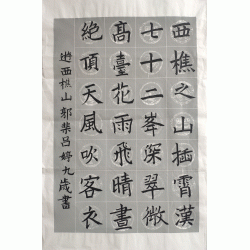 西樵之山插霄漢
七十二峯深翠微
髙臺花雨飛晴晝
絕頂天風吹客衣
遊西樵山郭棐呂婷九歲書